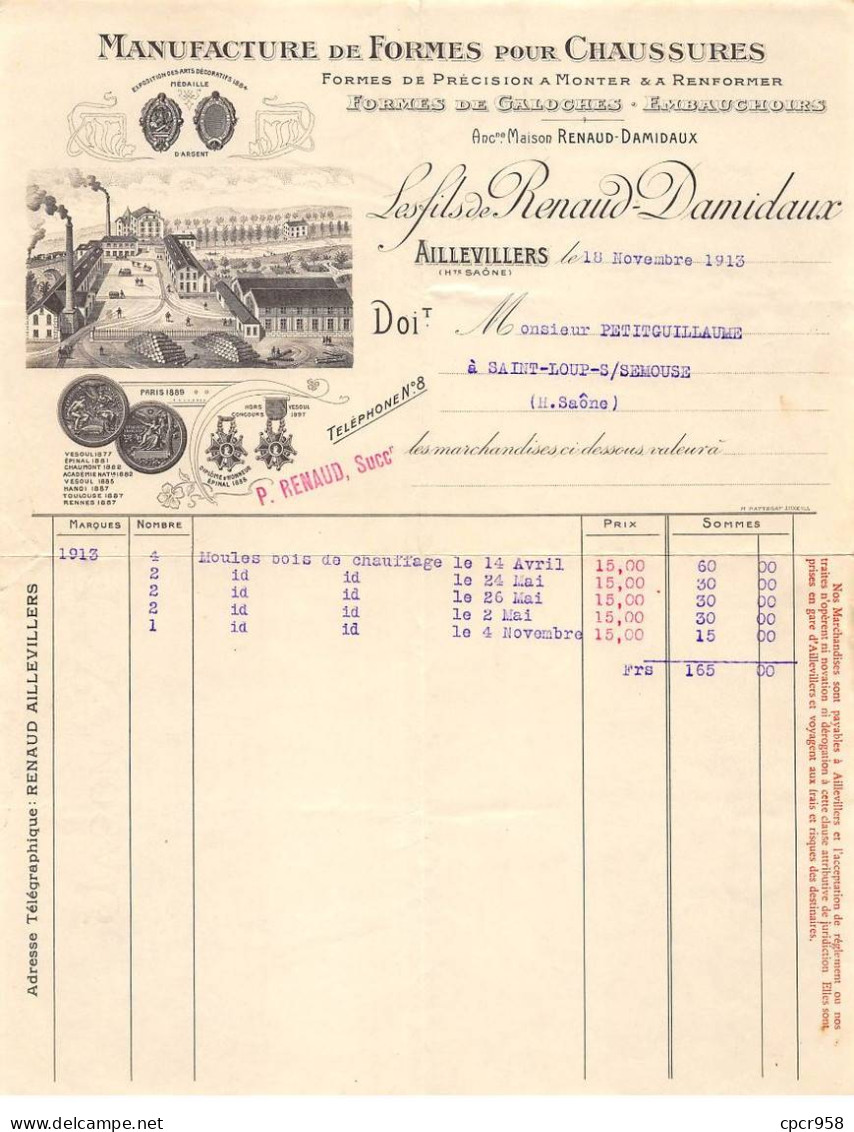 MANUFACTURE DE FORMES POUR CHAUSSURES
FORMES DE PRÉCISION A MONTER & A RENFORMER
FORMES DE GALOCHES - EMBAUCHOIRS
Ancne. Maison RENAUD-DAMIDAUX
EXPOSITION DES ARTS DÉCORATIFS 1884
MÉDAILLE
D'ARGENT
Les fils de Renaud-Damidaux
AILLEVILLERS le 18 Novembre 1913
(HTE SAÔNE)
DoiT. Monsieur PETITGUILLAUME
à SAINT-LOUP-S/SEMOUSE
(H.Saône)
les marchandises ci dessous valeur à
TELÉPHONE N°8
P. RENAUD, Succr
PARIS 1889
HORS CONCOURS
VESOUL 1897
DIPLÔME D'HONNEUR
ÉPINAL 1885
VESOUL 1877
ÉPINAL 1881
CHAUMONT 1882
ACADÉMIE NATle 1882
VESOUL 1885
HANOI 1887
TOULOUSE 1887
RENNES 1887
MARQUES NOMBRE PRIX SOMMES
1913 4 Moules bois de chauffage le 14 Avril 15,00 60 00
2 id id le 24 Mai 15,00 30 00
2 id id le 26 Mai 15,00 30 00
2 id id le 2 Mai 15,00 30 00
1 id id le 4 Novembre 15,00 15 00
Frs 165 00
Adresse Télégraphique: RENAUD AILLEVILLERS
Nos Marchandises sont payables à Aillevillers et l'acceptation de réglement ou nos
traites n'opèrent ni novation ni dérogation à cette clause attributive de juridiction Elles sont
prises en gare d'Aillevillers et voyagent aux frais et risques des destinaires.
cpcr958